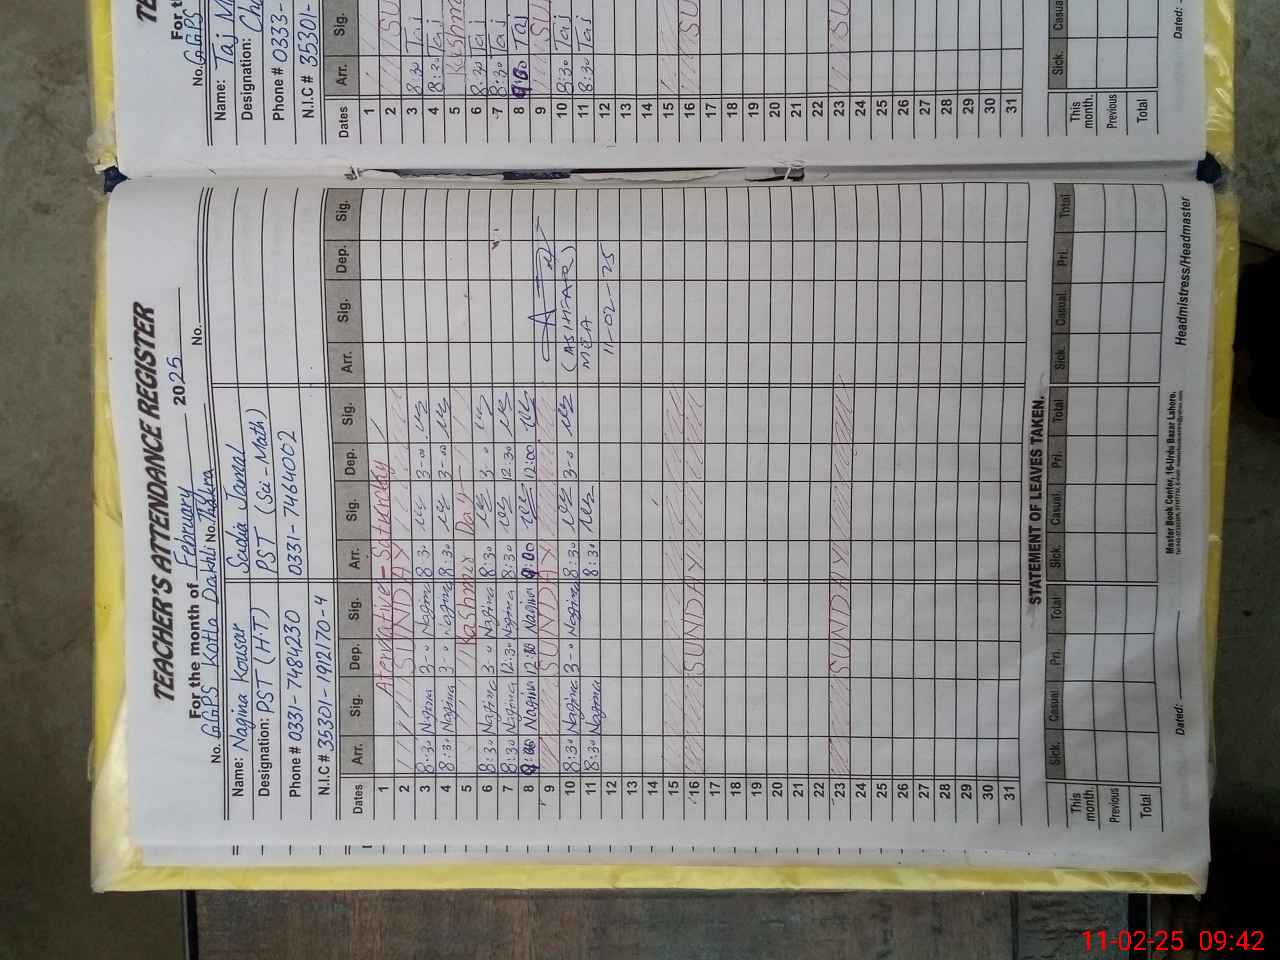 TEACHER'S ATTENDANCE REGISTER
For the month of February 2025
No. GGPS Kotla Dakhli No. No.
Name: Nagina Kousar Sadia Jamal
Designation: PST (H.T) PST (Sci-Math)
Phone # 0331-7484230 0331-7464002
N.I.C # 35301-1912170-4
Dates Arr. Sig. Dep. Sig. Arr. Sig. Dep. Sig. Arr. Sig. Dep. Sig.
1 Saturday
2 SUNDAY
3 8:30 Nagina 3-0 Nagina 8:30 3-00
4 8:30 Nagina 3-0 Nagina 8:30 3-00
5 Kashmir Day
6 8:30 Nagina 3-0 Nagina 8:30 3-0
7 8:30 Nagina 12:30 Nagina 8:30 12:30
8 9:00 Nagina Nagina 9:00 12:00
9 SUNDAY
10 8:30 Nagina 3-0 Nagina 8:30 3-0 (ASHFAQ)
11 8:30 Nagina 8:30 MEA
12 11-02-25
13
14
15
16 SUNDAY
17
18
19
20
21
22
23 SUNDAY
24
25
26
27
28
29
30
31
STATEMENT OF LEAVES TAKEN.
Sick. Casual Pri. Total Sick. Casual. Pri. Total Sick. Casual. Pri. Total
This month.
Previous
Total
Dated:
Master Book Center, 16-Urdu Bazar Lahore.
Headmistress/Headmaster
For th
No. GGPS
Name: Taj M
Designation: Ch
Phone # 0333-
N.I.C # 35301-
Dates Arr. Sig.
1
2 SU
3 8:30 Taj
4 8:30 Taj
5 Kashm
6 8:30 Taj
7 8:30 Taj
8 9:00 Taj
9 SU
10 8:30 Taj
11 8:30 Taj
12
13
14
15
16 SU
17
18
19
20
21
22
23 SU
24
25
26
27
28
29
30
31
Sick. Casua
This month.
Previous
Total
Dated:
11-02-25 09:42